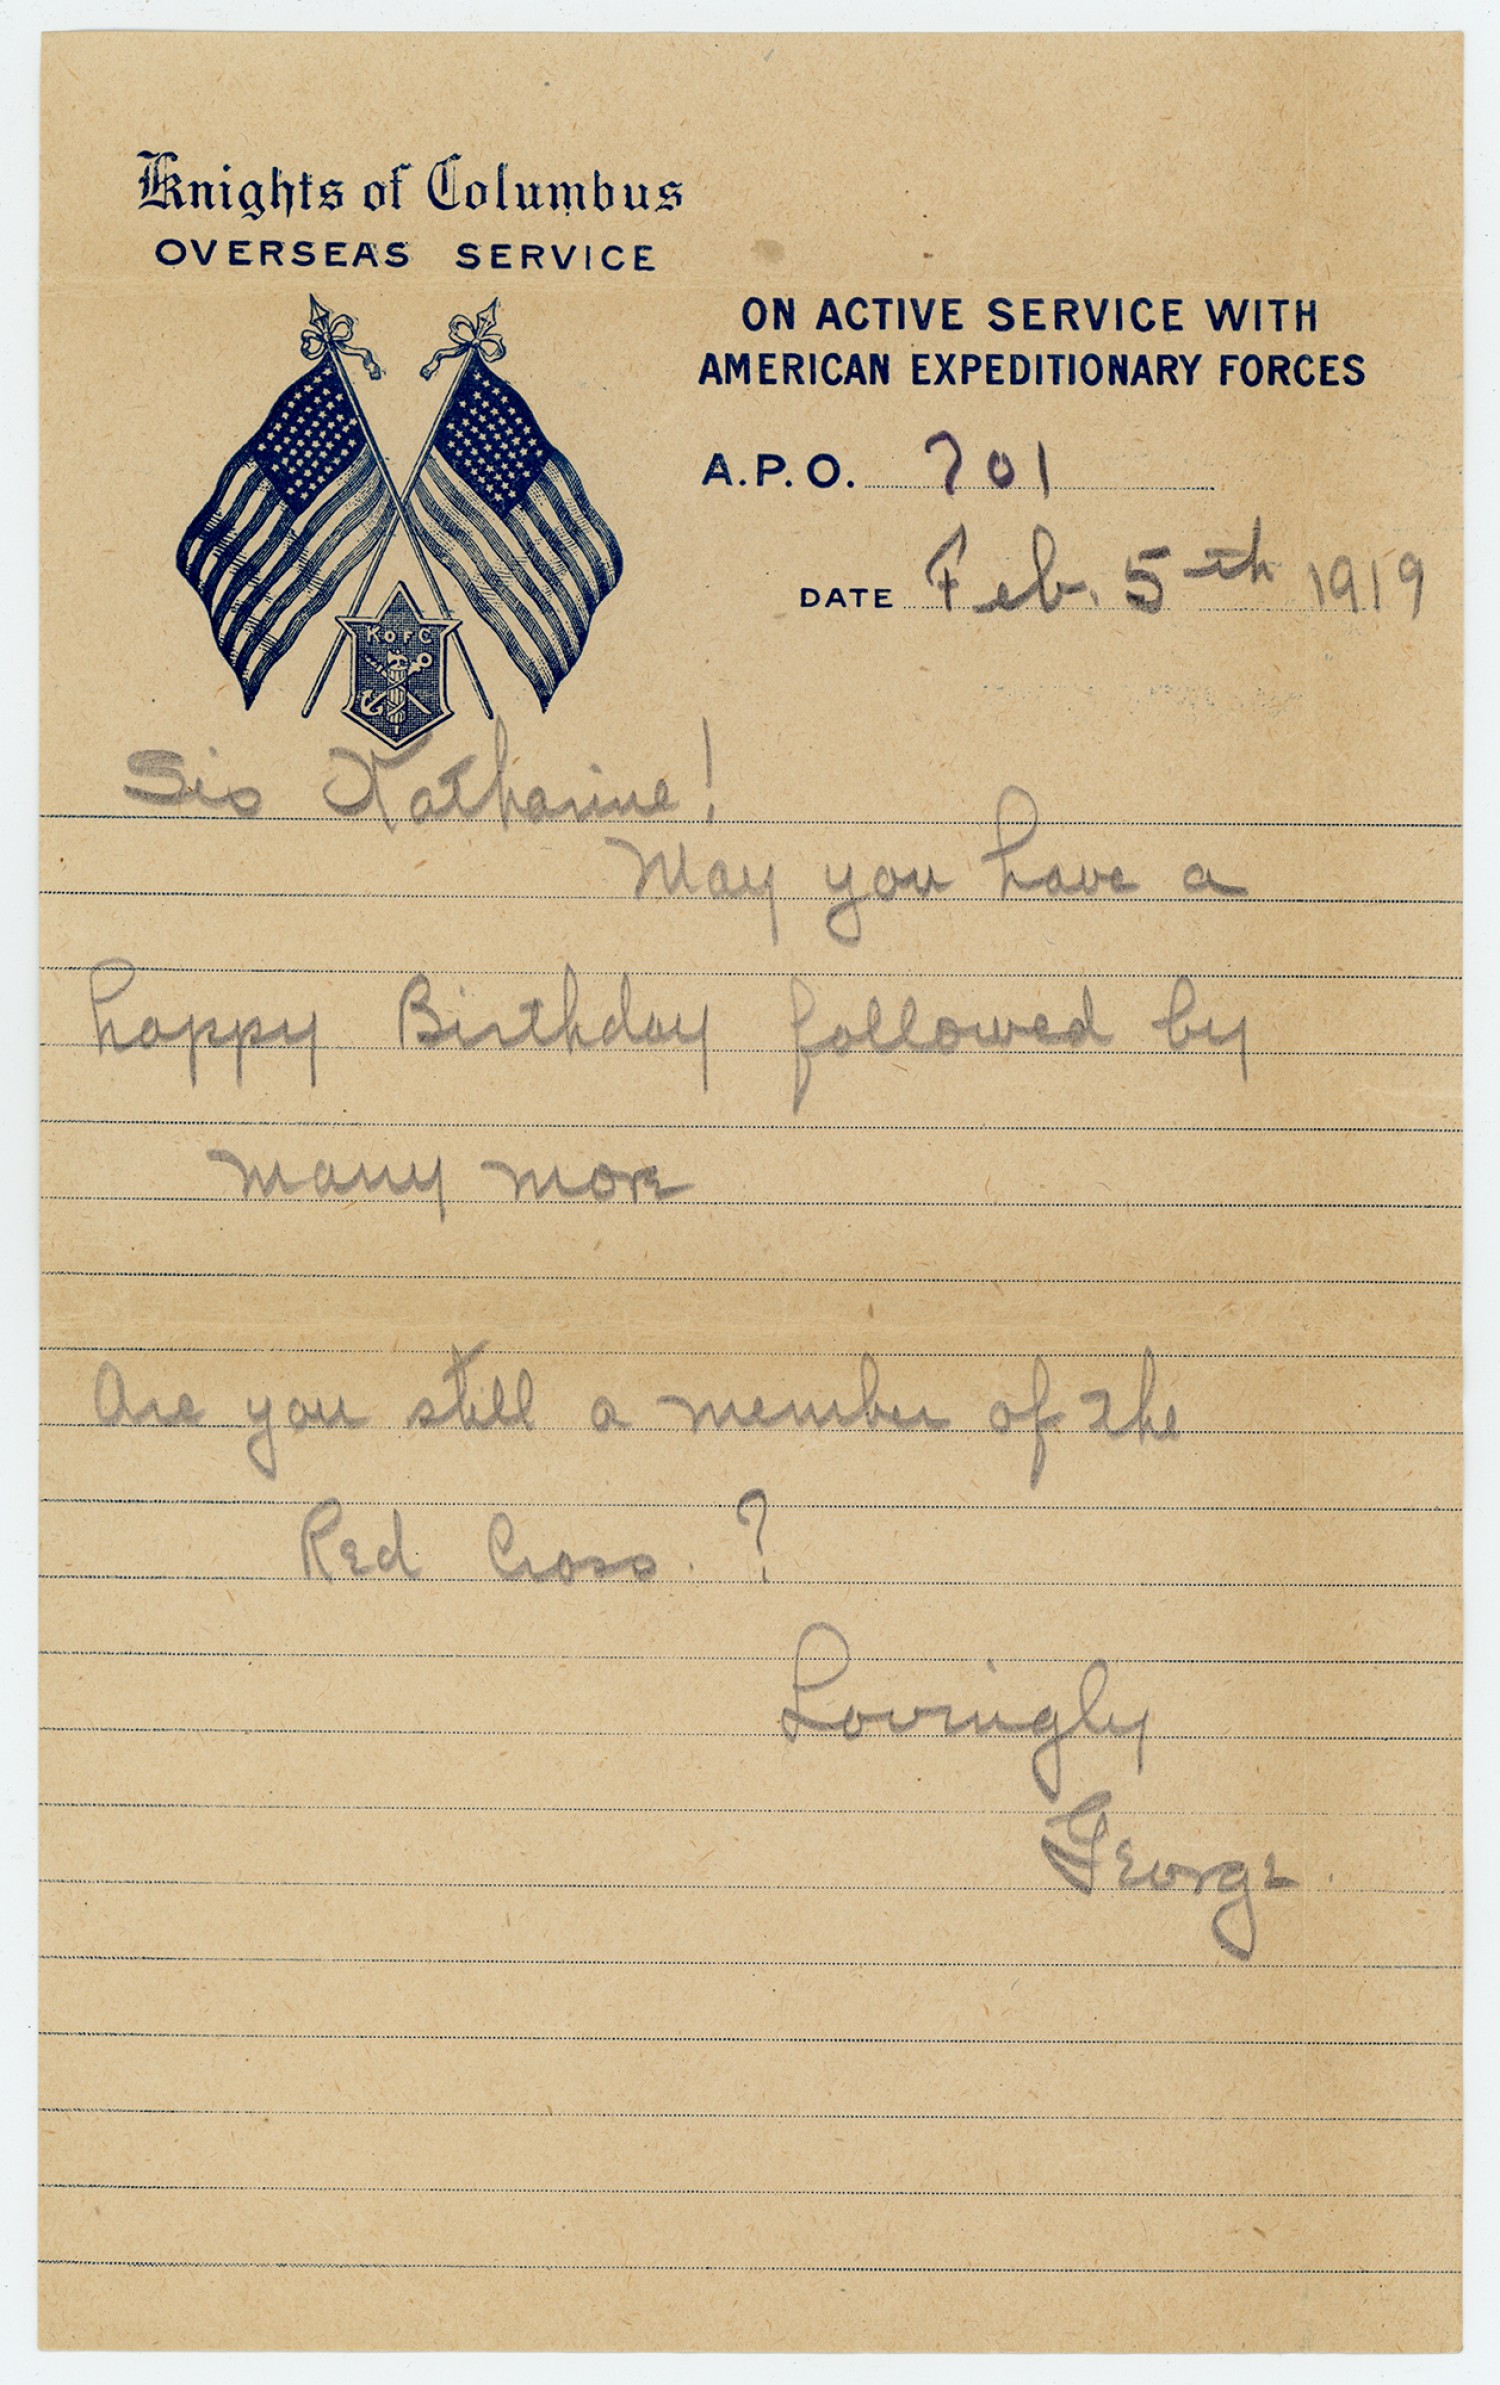 Knights of Columbus
OVERSEAS SERVICE
ON ACTIVE SERVICE WITH
AMERICAN EXPEDITIONARY FORCES
A.P.O. 701
DATE Feb. 5th 1919
K OF C
Sis Katharine!
May you have a
happy Birthday followed by
many more
Are you still a member of the
Red Cross. ?
Lovingly
George.